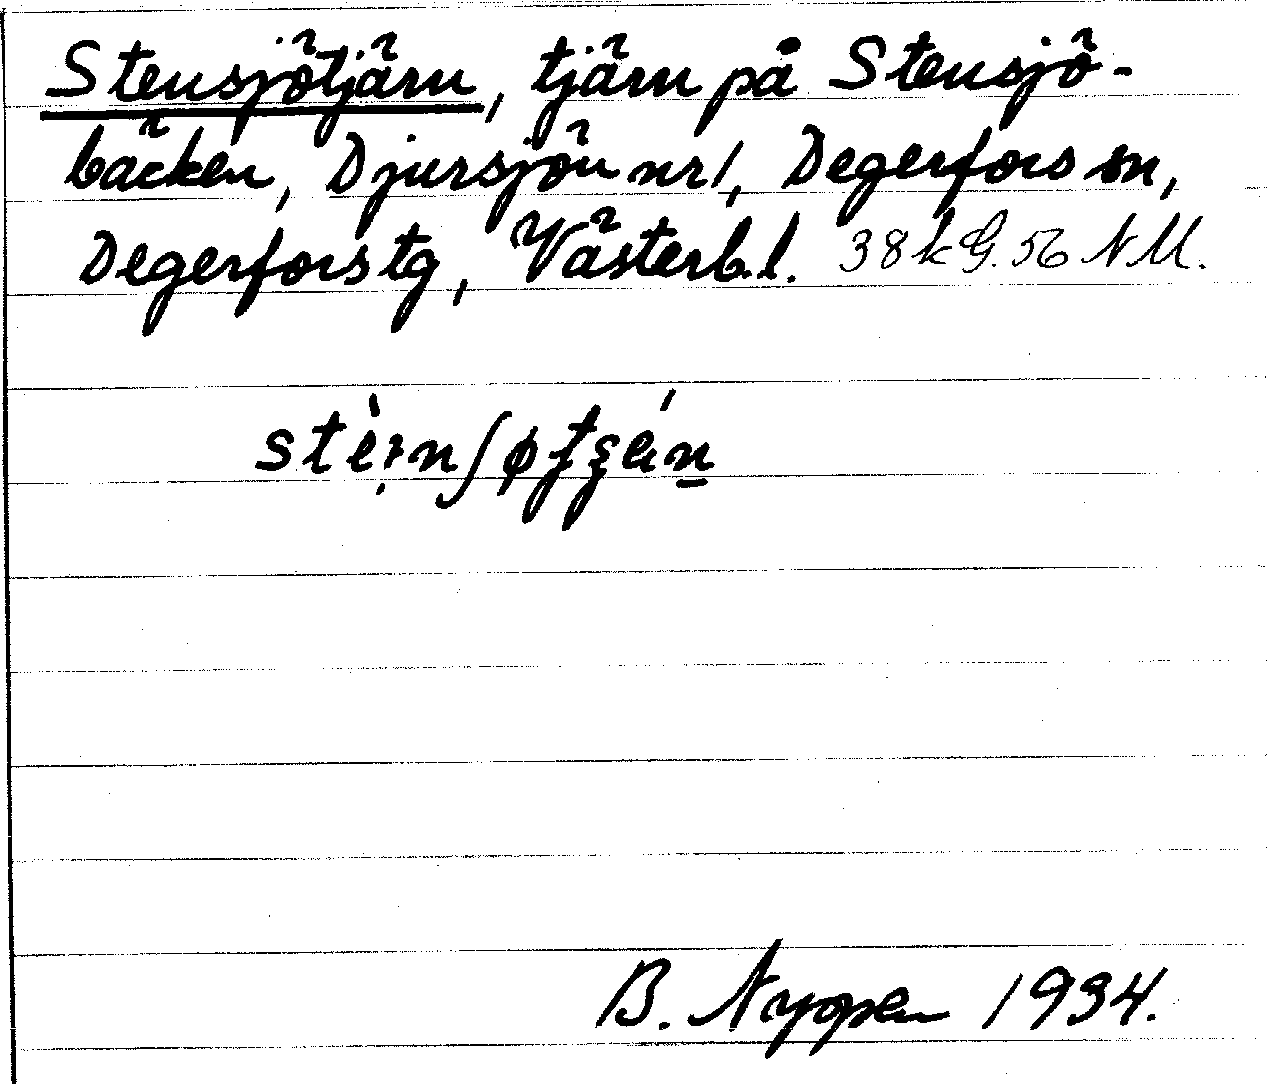 Stensjötjärn, tjärn på Stensjö-
bäcken, Djursjön nr 1, Degerfors sn,
Degerfors tg, Västerb. l. 38 k G. 56 N M.
B. Nygren 1934.